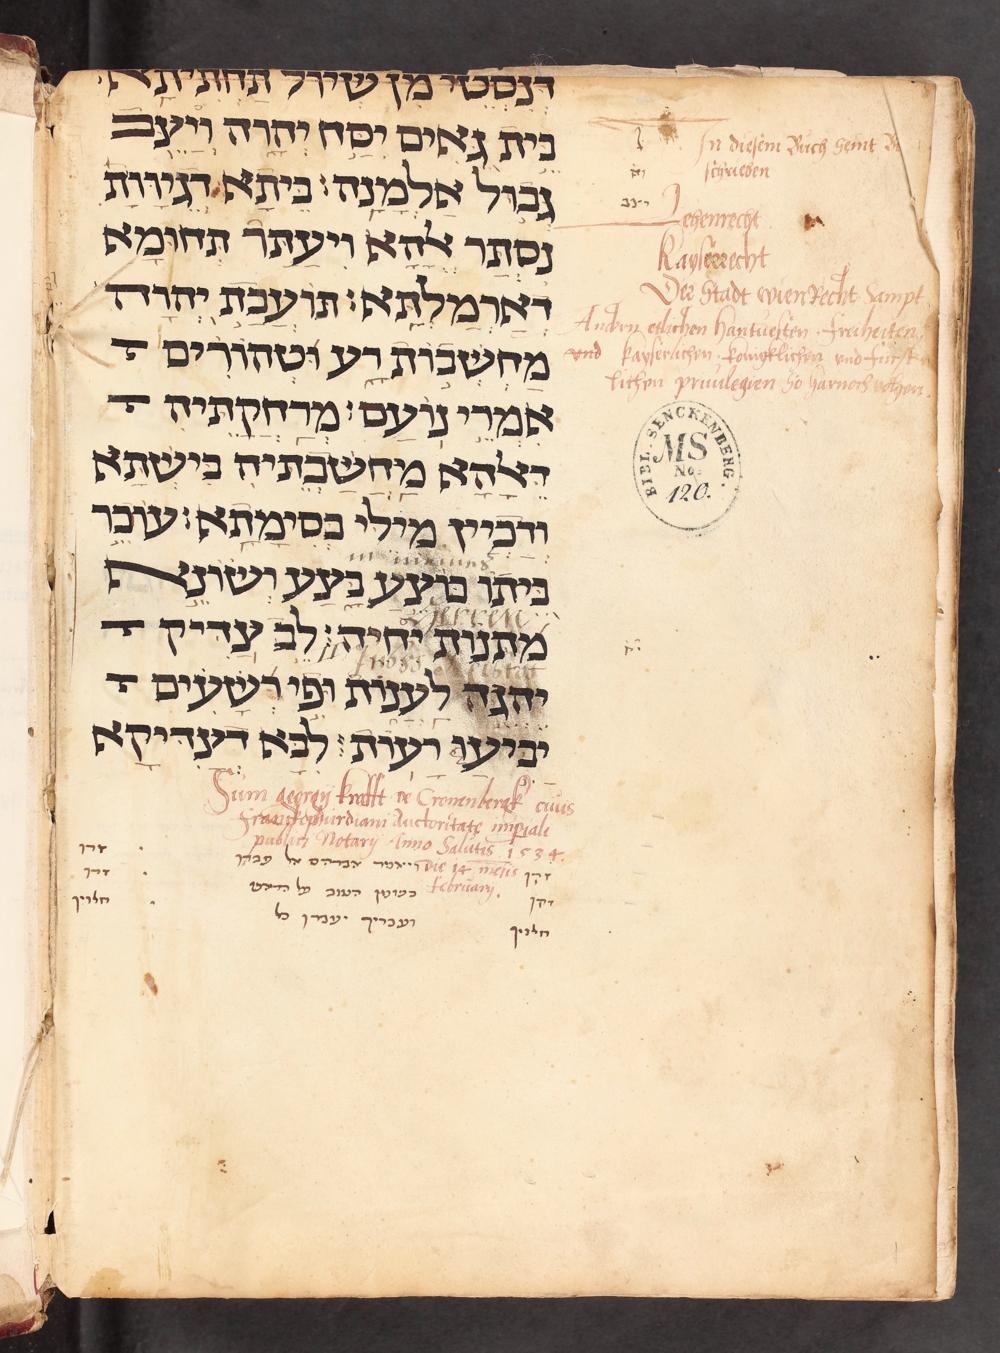 דנסטי מן שיול תחתיתא׃
בית גאים יסח יהוה ויצב
גבול אלמנה׃ ביתא דגיוות
נסתר אלהא ויעתר תחומא
דארמלתא׃ תועבת יהוה
מחשבות רע וטהורים
אמרי נועם׃ מרחקתיה
דאלהא מחשבתיה בישתא
ודכיין מילי בסימתא׃ עוכר
ביתו בוצע בצע ושונא
מתנות יחיה׃ לב צדיק
יהגה לענות ופי רשעים
יביע רעות׃ לבא דצדיקא
In diesem Buch seint
schrieben
Lehenrecht
Kayserrecht
Der Stadt wien Recht Sampt
Andern etlichen hantuesten freiheiten
vnd kayserlichen konigklichen vnd furst
lichen priuilegien So harnoch volgen.
BIBL. SENCKENBERG.
MS
No.
120.
Sum georgij krafft de Cronenbergk ciuis
franckophurdiani Auctoritate imperiali
publicj Notarij Anno Salutis 1534.
Die 14 mensis
februarij.
ויאמר אברהם אל עבדו
זקן
כשמן הטוב על הראש
זקן